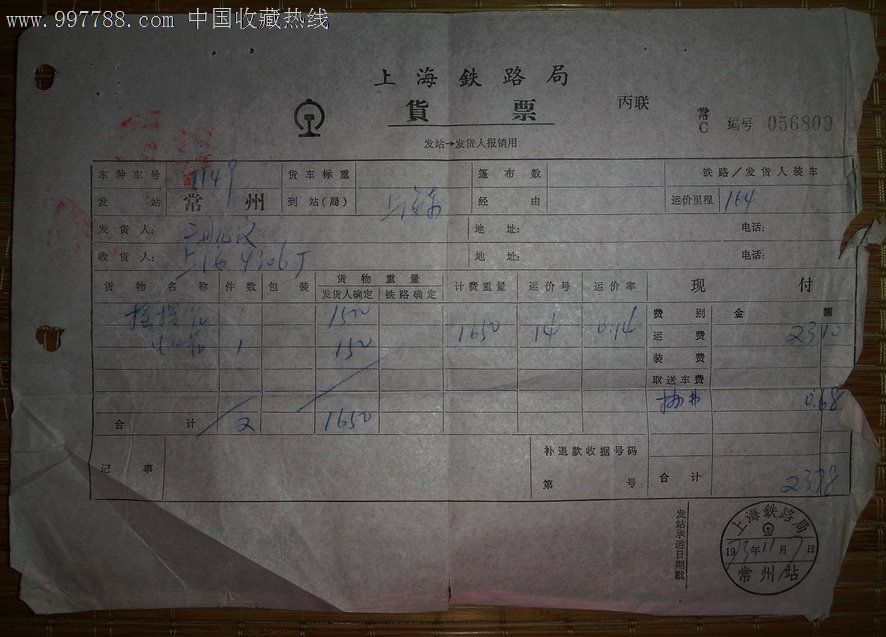 www.997788.com 中国收藏热线
上海鉄路局
貨票
丙联
常C 编号 056809
发站→发货人报销用
车种车号 1149 货车标重 篷布数 铁路/发货人装车
发站 常州 到站(局) 经由 运价里程 164
发货人: 地址: 电话:
收货人: 上海4306厂 地址: 电话:
货物名称 件数 包装 货物重量 计费重量 运价号 运价率 现付
发货人确定 铁路确定
费别 金额
1500
1650 14 0.14 运费 23.10
1 150
装费
取送车费
0.68
合计 2 1650
记事 补退款收据号码
第 号
合计 23.78
发站承运日期戳
上海鉄路局
1973年11月7日
常州站